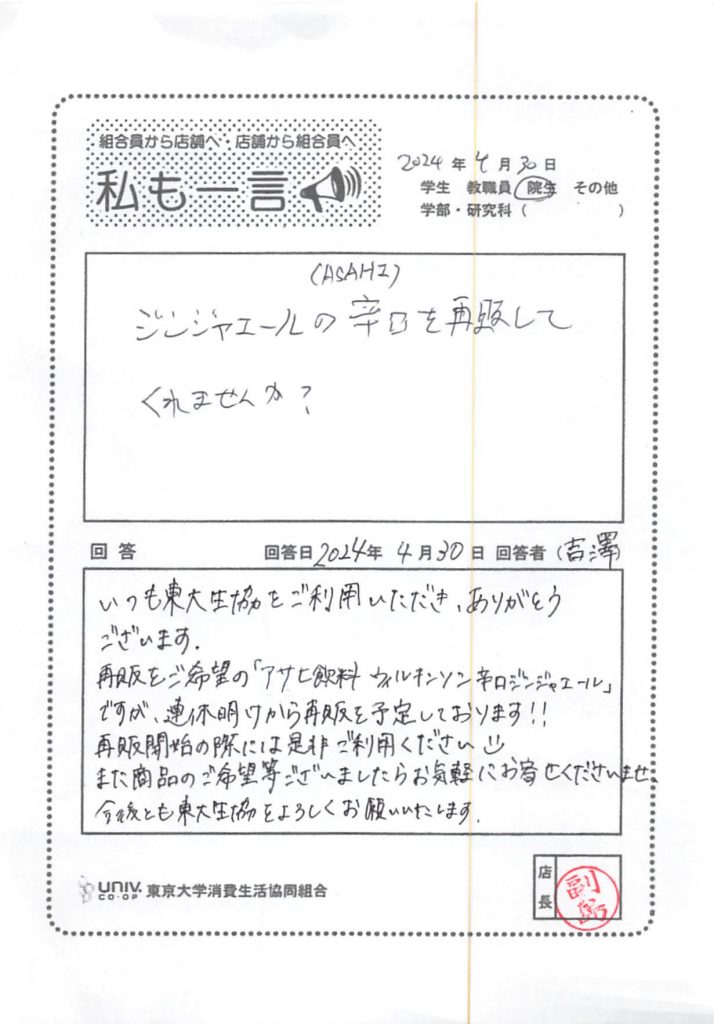 組合員から店舗へ・店舗から組合員へ
私も一言
2024年4月30日
学生 教職員 院生 その他
学部・研究科( )
(ASAHI)
ジンジャエールの辛口を再販して
くれませんか?
回答 回答日2024年4月30日 回答者(吉澤)
いつも東大生協をご利用いただき、ありがとう
ございます.
再販をご希望の「アサヒ飲料 ウィルキンソン辛口ジンジャエール」
ですが、連休明けから再販を予定しております!!
再販開始の際には是非ご利用ください
また商品のご希望等ございましたらお気軽にお寄せくださいませ、
今後とも東大生協をよろしくお願いいたします.
UNIV. CO-OP 東京大学消費生活協同組合
店長